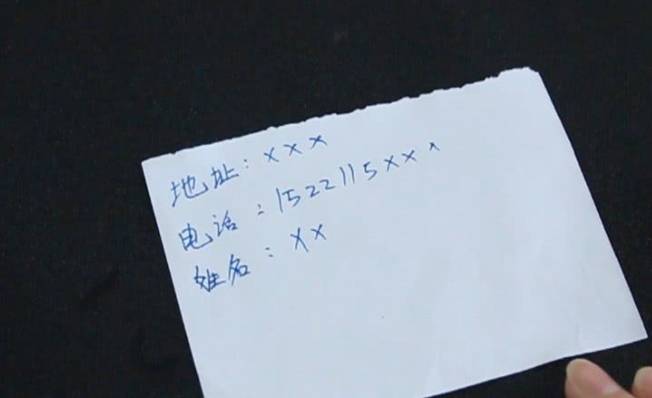 地址：xxx
电话：1522115xxx
姓名：xx